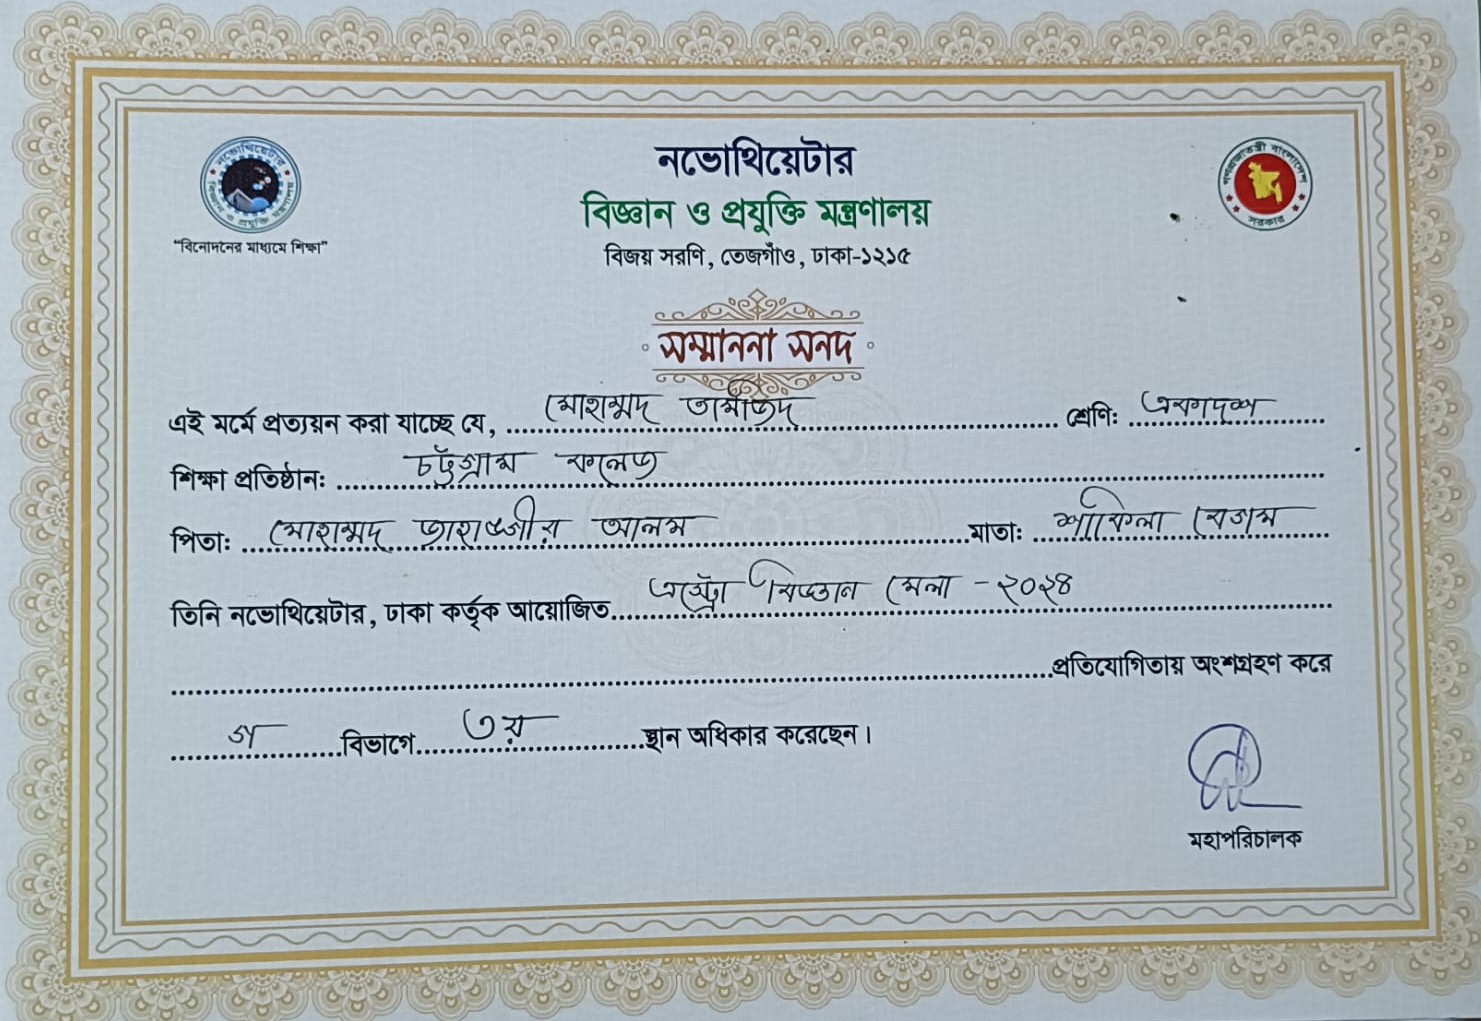 নভোথিয়েটার
বিজ্ঞান ও প্রযুক্তি মন্ত্রণালয়
বিজয় সরণি, তেজগাঁও, ঢাকা-১২১৫
নভোথিয়েটার
বিজ্ঞান ও প্রযুক্তি মন্ত্রণালয়
"বিনোদনের মাধ্যমে শিক্ষা"
গণপ্রজাতন্ত্রী বাংলাদেশ
সরকার
সম্মাননা সনদ
এই মর্মে প্রত্যয়ন করা যাচ্ছে যে, মোহাম্মদ তামজিদ শ্রেণি: একাদশ
শিক্ষা প্রতিষ্ঠান: চট্টগ্রাম কলেজ
পিতা: মোহাম্মদ জাহাঙ্গীর আলম মাতা: শাকিলা বেগম
তিনি নভোথিয়েটার, ঢাকা কর্তৃক আয়োজিত এস্ট্রো বিজ্ঞান মেলা - ২০২৪
প্রতিযোগিতায় অংশগ্রহণ করে
গ বিভাগে ৩য় স্থান অধিকার করেছেন।
মহাপরিচালক